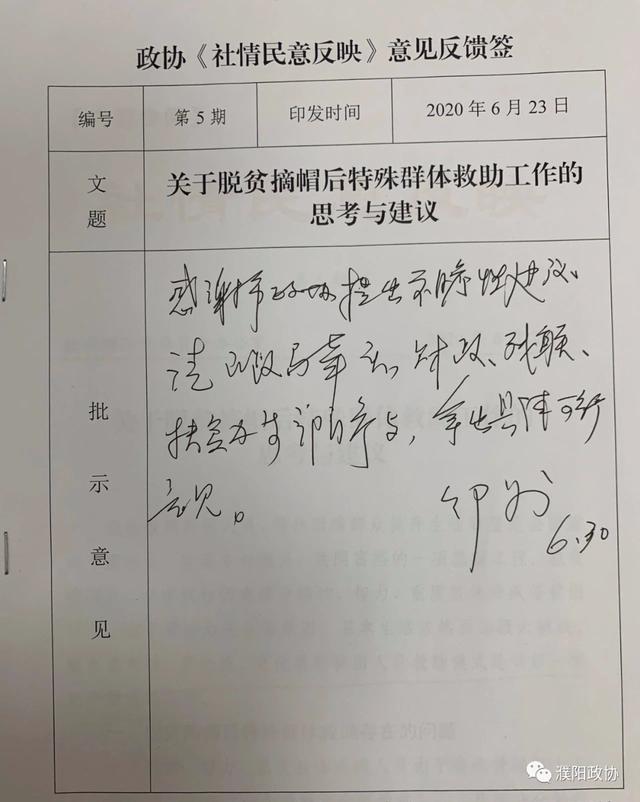 政协《社情民意反映》意见反馈签
编号 第5期 印发时间 2020年6月23日
文题 关于脱贫摘帽后特殊群体救助工作的
思考与建议
批示意见
感谢市政协提出前瞻性建议。
请民政局牵头,财政、残联、
扶贫办等部门参与,拿出具体可行
意见。
6.30
濮阳政协